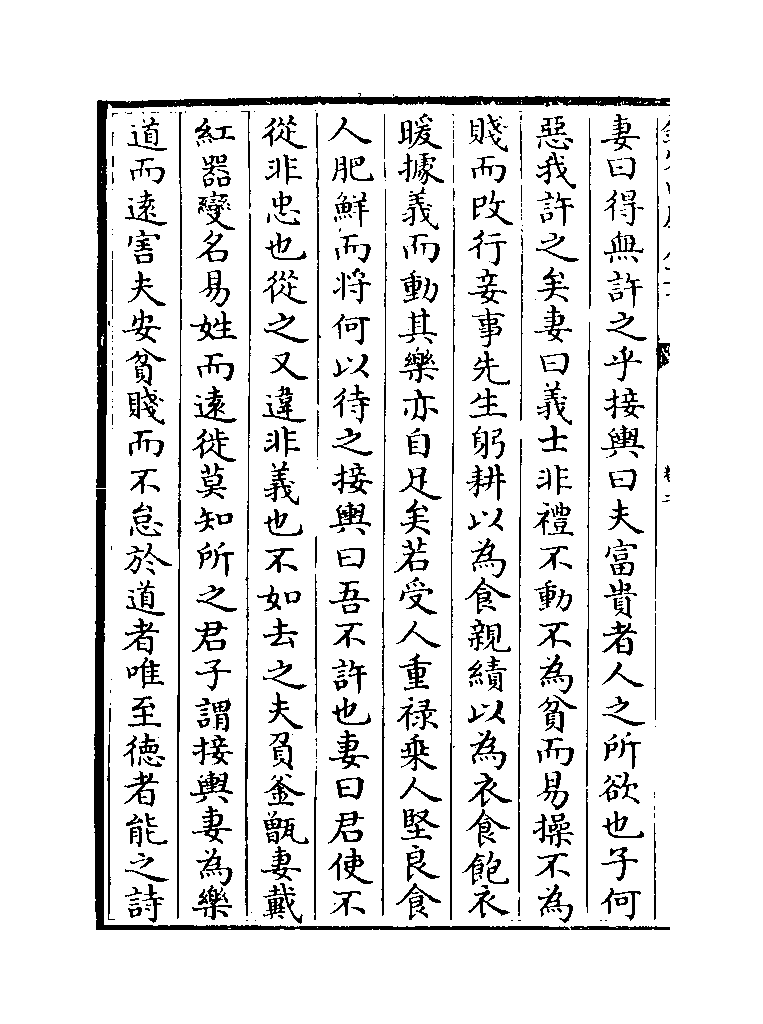 妻曰得無許之乎接輿曰夫富貴者人之所欲也子何
惡我許之矣妻曰義士非禮不動不為貧而易操不為
賤而改行妾事先生躬耕以為食親績以為衣食飽衣
暖據義而動其樂亦自足矣若受人重禄乘人堅良食
人肥鮮而将何以待之接輿曰吾不許也妻曰君使不
從非忠也從之又違非義也不如去之夫負釜甑妻戴
紅器變名易姓而逺徙莫知所之君子謂接輿妻為樂
道而逺害夫安貧賤而不怠於道者唯至徳者能之詩